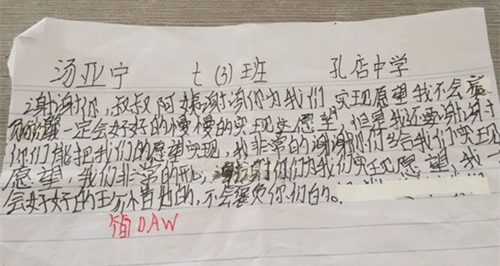 汤亚宁 七(3)班 孔店中学
谢谢你,叔叔阿姨谢谢你为我们实现愿望我不会
一定会好好的慢慢的实现愿望 但是我还要谢谢
你们能把我们的愿望实现,我非常的谢谢你们给我们实现
愿望,我们非常的开心,谢谢你们为我们实现愿望 我一
会好好的 的,不会辜负你们的。
简DAW